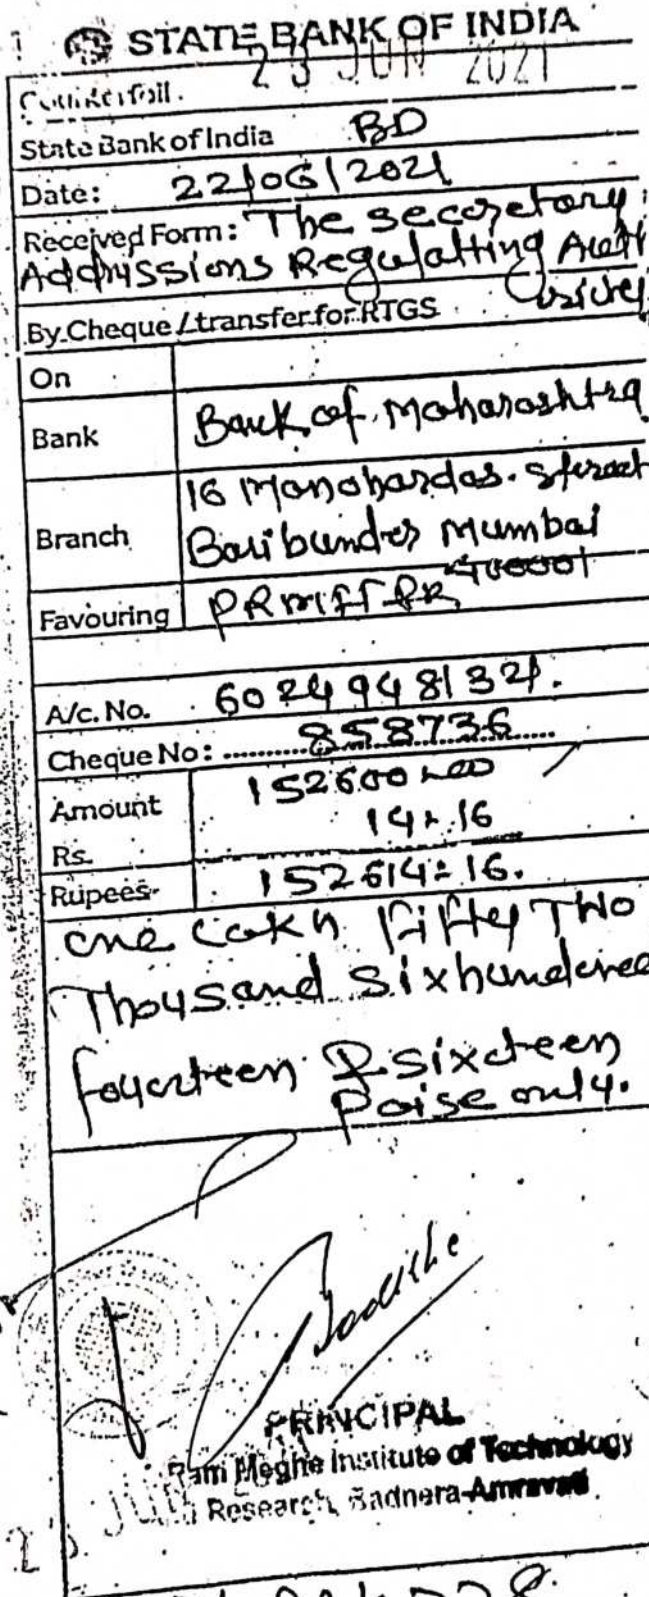 STATE BANK OF INDIA
23 JUN 2021
Counterfoil.
State Bank of India BD
Date: 22/06/2021
Received Form: The secoretory
Admissions Regulatting
By Cheque / transfer for RTGS
On
Bank Bank of Maharashtra
16 Manohardas. street
Branch Baribunder Mumbai
400001
Favouring
A/c. No. 60249481321.
Cheque No: 858736
Amount 152600=00
14=16
Rs.
Rupees 152614=16.
one Lakh Fifty Two
Thousand sixhunderred
fourteen & sixteen
Paise only.
PRINCIPAL
Ram Meghe Institute of Technology
Research, Badnera-Amravati
JUN